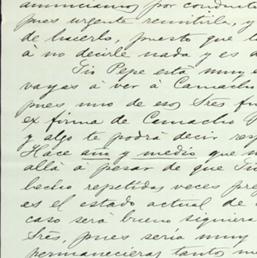 anunciamos por conducto
pues urgente remitirle, y
de hacerlo, puesto que t
á no decirle nada y es a
Tio Pepe está muy e
vayas á ver á Camacho
pues uno de esos Tres fu
ex firma de Camacho
y algo te podrá decir res
Hace año y medio que n
allá á pesar de que Tio
hecho repetidas veces pre
es el estado actual de
caso será bueno siguiera
Tres, pues sería muy
permanecieras tanto m